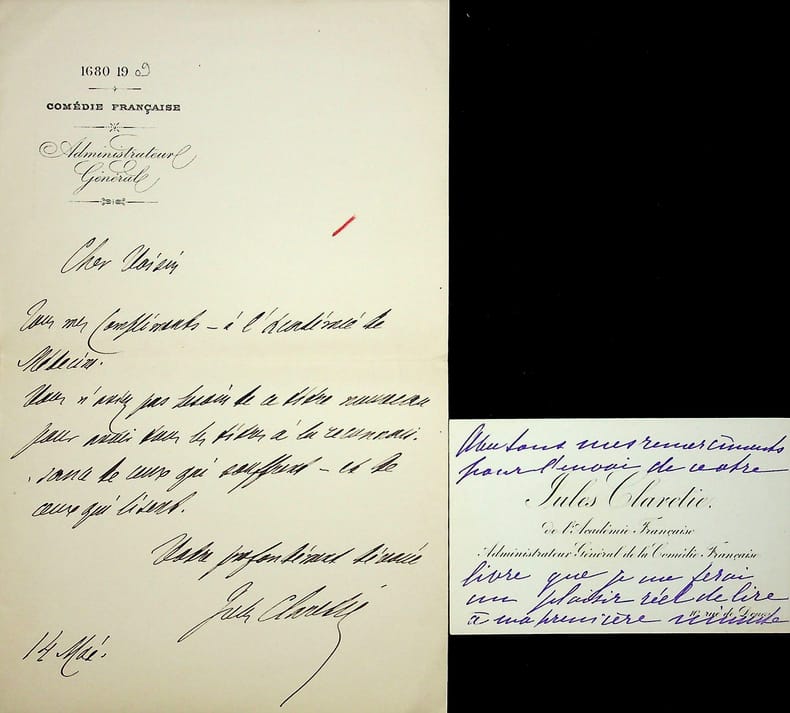 1680 1909
COMÉDIE FRANÇAISE
Administrateur
Général
Cher Voisin
Tous mes compliments – à l'Académie de
Médecine.
Vous n'aviez pas besoin de ce titre nouveau
pour avoir tous les titres à la reconnais-
sance de ceux qui souffrent – et de
ceux qui lisent.
Votre profondément dévoué
Jules Claretie
14 Mai.
Avec tous mes remerciments
pour l'envoi de votre
Jules Claretie.
de l'Académie Française
Administrateur Général de la Comédie Française
livre que je me ferai
un plaisir réel de lire
10, rue de Douai
à ma première minute